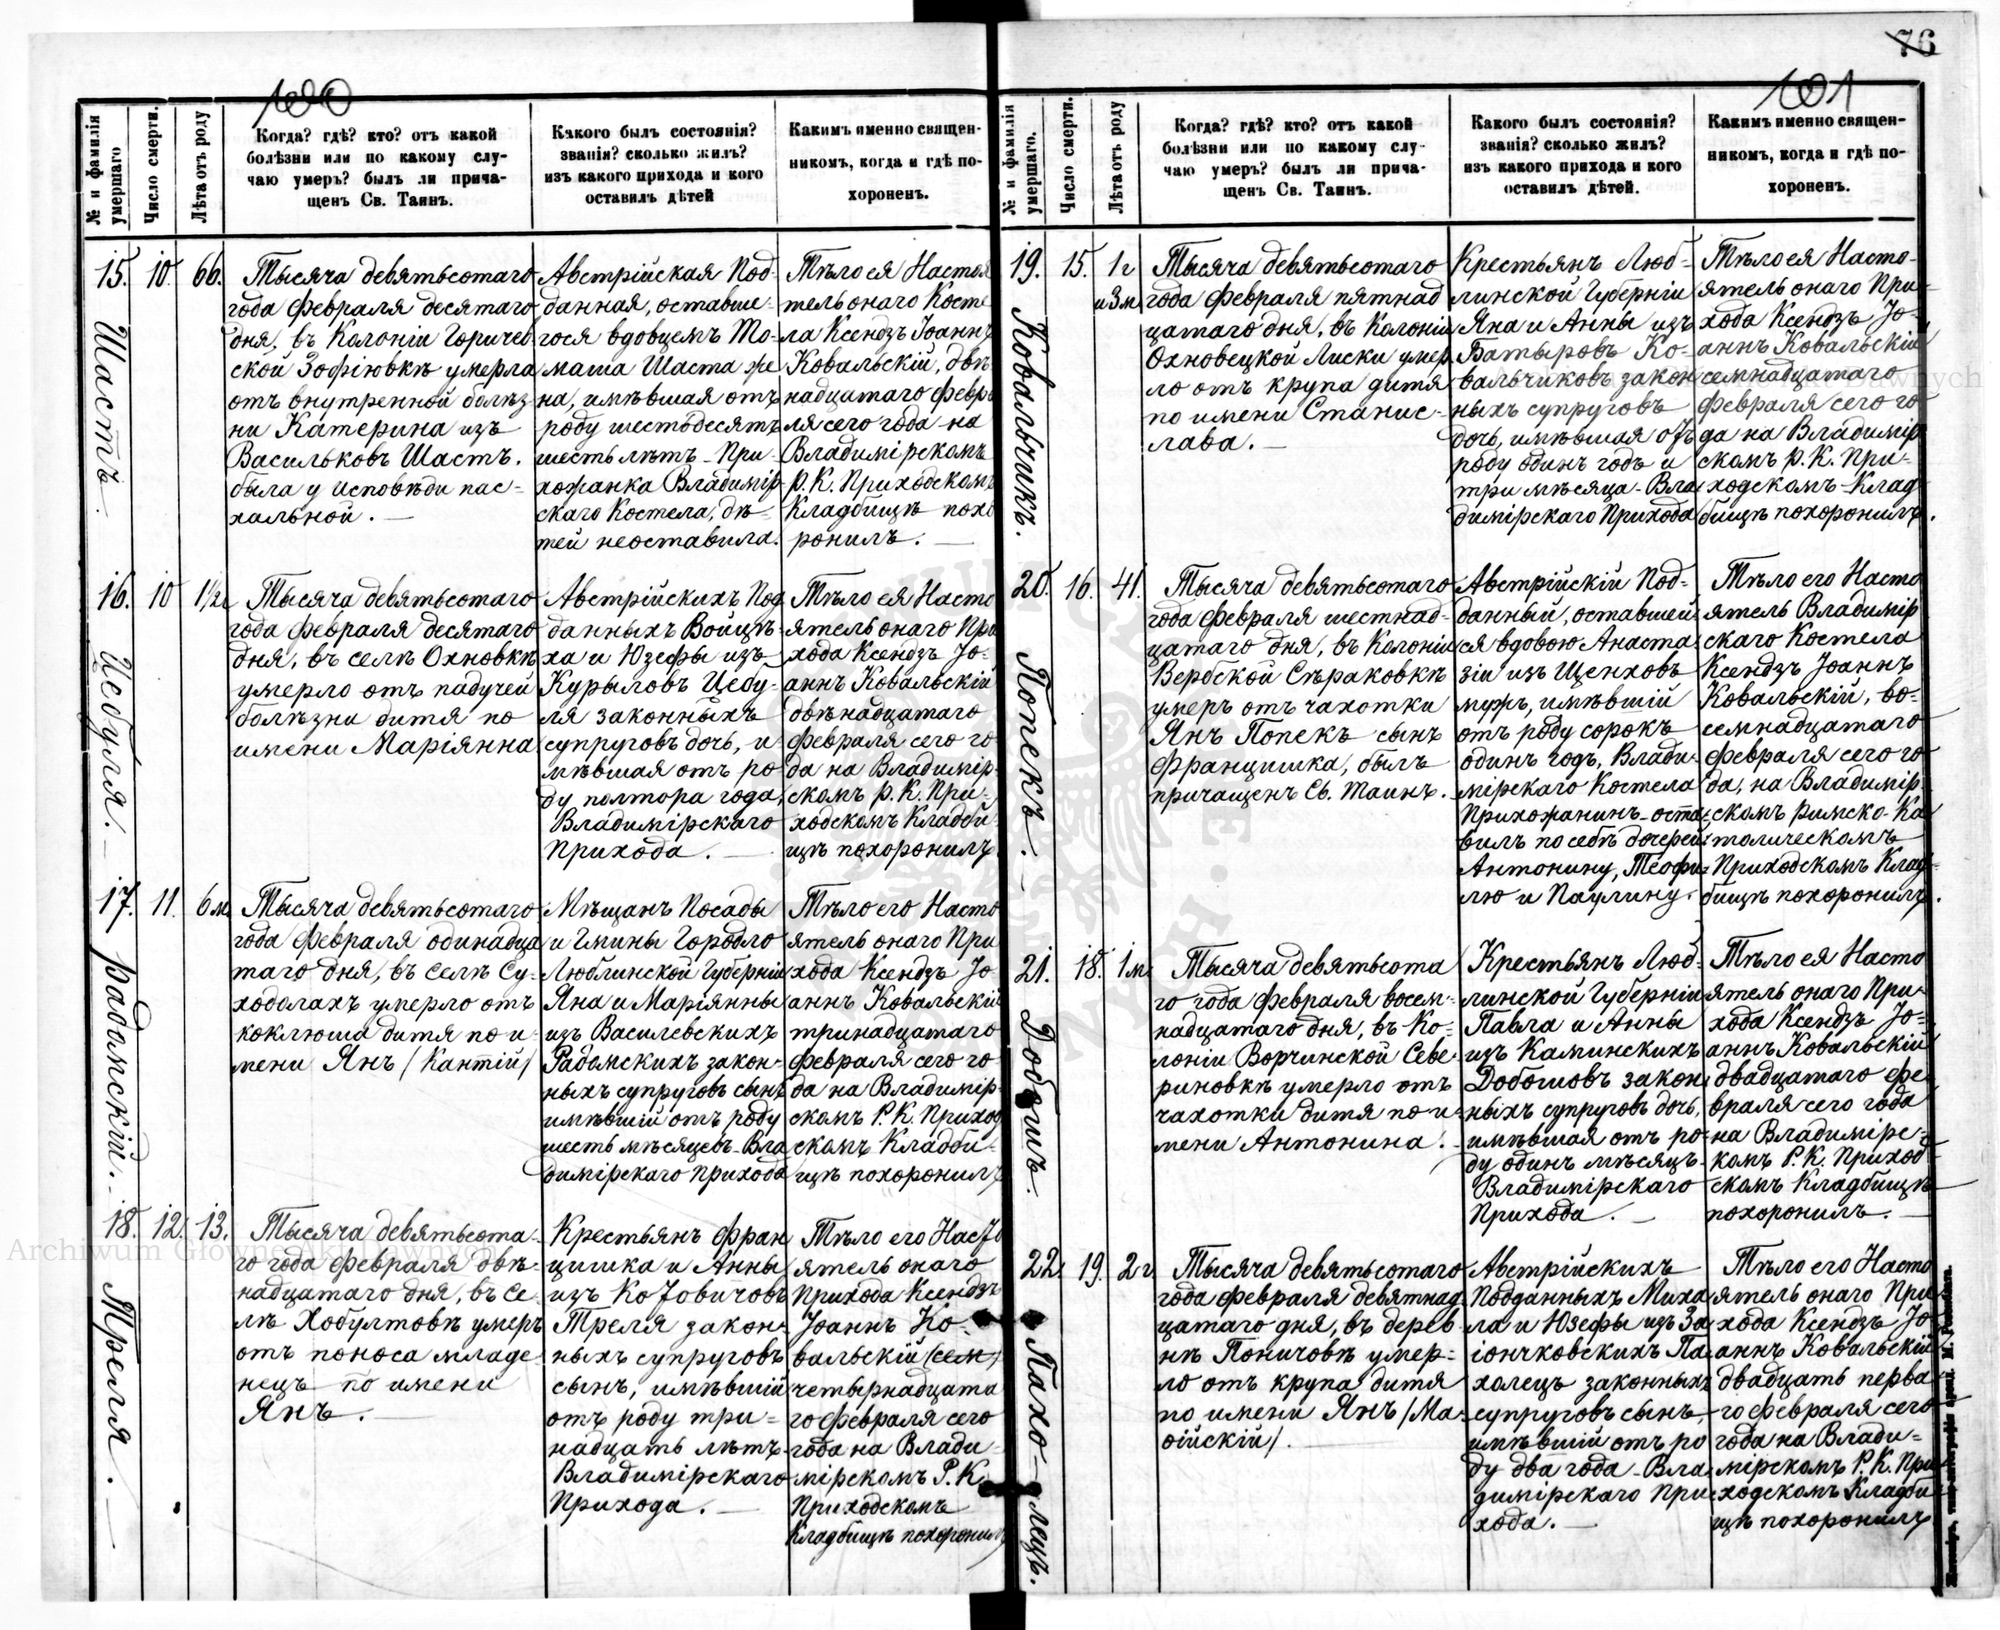 76
100
№ и фамилія умершаго
Число смерти.
Лѣта отъ роду
Когда? гдѣ? кто? отъ какой
болѣзни или по какому слу-
чаю умеръ? былъ ли прича-
щенъ Св. Таинъ.
Какого былъ состоянія?
званія? сколько жилъ?
изъ какого прихода и кого
оставилъ дѣтей
Какимъ именно священ-
никомъ, когда и гдѣ по-
хороненъ.
15.
Шастъ.
10.
66.
Тысяча девятьсотаго
года февраля десятаго
дня, въ Колоніи Горичев
ской Зофіювкѣ умерла
отъ внутренной болѣз
ни Катерина изъ
Васильковъ Шастъ.
была у исповѣди пас-
хальной. —
Австрійская Под-
данная, оставше-
гося вдовцемъ То-
маша Шаста же
на, имѣвшая отъ
роду шестьдесятъ
шесть лѣтъ – При-
хожанка Владимір-
скаго Костела, дѣ-
тей неоставила.
Тѣло ея Настоя
тель онаго Косте
ла Ксендзъ Іоаннъ
Ковальскій, двѣ
надцатаго февра
ля сего года на
Владимірскомъ
Р. К. Приходскомъ
Кладбищѣ похо
ронилъ. —
16.
Цебуля. —
10
1½г
Тысяча девятьсотаго
года февраля десятаго
дня, въ селѣ Охновкѣ
умерло отъ падучей
болѣзни дитя по
имени Маріянна
Австрійскихъ Под
данныхъ Войцѣ-
ха и Юзефы изъ
Курыловъ Цебу-
ля законныхъ
супруговъ дочь, и-
мѣвшая отъ ро
ду полтора года,
Владимірскаго
Прихода. —
Тѣло ея Насто
ятель онаго При
хода Ксендзъ Іо-
аннъ Ковальскій
двѣнадцатаго
февраля сего го
да на Владимір-
скомъ Р. К. При-
ходскомъ Кладби-
щѣ похоронилъ
17.
Радомскій. —
11.
6 м.
Тысяча девятьсотаго
года февраля одинадца
таго дня, въ селѣ Су-
ходолахъ умерло отъ
коклюша дитя по и-
мени Янъ /Кантій/
Мѣщанъ Посады
и Гмины Городло
Люблинской Губерніи
Яна и Маріянны
изъ Василевскихъ
Радомскихъ закон-
ныхъ супруговъ сынъ
имѣвшій отъ роду
шесть мѣсяцевъ – Вла
димірскаго прихода
Тѣло его Насто
ятель онаго При
хода Ксендзъ Іо-
аннъ Ковальскій
тринадцатаго
февраля сего го-
да на Владимір-
скомъ Р. К. Приход
скомъ Кладби-
щѣ похоронилъ
18.
Треля. —
12.
13.
Тысяча девятьсота-
го года февраля двѣ-
надцатаго дня, въ Се-
лѣ Хобултовѣ умеръ
отъ поноса младе
нецъ по имени
Янъ. —
Крестьянъ Фран
цишка и Анны
изъ Котовичовъ
Треля закон-
ныхъ супруговъ
сынъ, имѣвшій
отъ роду три-
надцать лѣтъ
Владимірскаго
Прихода. —
Тѣло его Насто
ятель онаго
Прихода Ксендзъ
Іоаннъ Ко-
вальскій (сем)
четырнадцата
го февраля сего
года на Влади-
мірскомъ Р. К.
Приходскомъ
Кладбищѣ похоронилъ
101
№ и фамилія умершаго.
Число смерти.
Лѣта отъ роду
Когда? гдѣ? кто? отъ какой
болѣзни или по какому слу-
чаю умеръ? былъ ли прича-
щенъ Св. Таинъ.
Какого былъ состоянія?
званія? сколько жилъ?
изъ какого прихода и кого
оставилъ дѣтей.
Какимъ именно священ-
никомъ, когда и гдѣ по-
хороненъ.
19.
Ковальчикъ.
15.
1 г
и 3 м
Тысяча девятьсотаго
года февраля пятнад
цатаго дня, въ Колоніи
Охновецкой Лиски умер
ло отъ крупа дитя
по имени Станис-
лава. —
Крестьянъ Люб-
линской Губерніи
Яна и Анны изъ
Батыровъ Ко-
вальчиковъ закон
ныхъ супруговъ
дочь, имѣвшая отъ
роду одинъ годъ и
три мѣсяца – Вла
димірскаго Прихода
Тѣло ея Насто-
ятель онаго При-
хода Ксендзъ Іо-
аннъ Ковальскій
семнадцатаго
февраля сего го
да на Владимір
скомъ Р. К. При-
ходскомъ Клад
бищѣ похоронилъ.
20.
Попекъ. —
16.
41.
Тысяча девятьсотаго
года февраля шестнад-
цатаго дня, въ Колоніи
Вербской Сѣраковкѣ
умеръ отъ чахотки
Янъ Попекъ сынъ
Францишка, былъ
причащенъ Св. Таинъ.
Австрійскій Под-
данный, оставшей-
ся вдовою Анаста
зіи изъ Щенховъ
мужъ, имѣвшій
отъ роду сорокъ
одинъ годъ, Влади-
мірскаго Костела
Прихожанинъ – оста
вилъ по себѣ дочерей
Антонину, Теофи-
лю и Паулину.
Тѣло его Насто
ятель Владимір
скаго Костела
Ксендзъ Іоаннъ
Ковальскій, во-
семнадцатаго
февраля сего го-
да, на Владимір-
скомъ Римско-Ка
толическомъ
Приходскомъ Клад-
бищѣ похоронилъ.
21.
Добошъ.
18.
1 м
Тысяча девятьсота
го года февраля восем-
надцатаго дня, въ Ко-
лоніи Ворчинской Севе-
риновкѣ умерло отъ
чахотки дитя по и-
мени Антонина. —
Крестьянъ Люб-
линской Губерніи
Павла и Анны
изъ Каминскихъ
Добошовъ закон
ныхъ супруговъ дочь,
имѣвшая отъ ро-
ду одинъ мѣсяцъ.
Владимірскаго
Прихода. —
Тѣло ея Насто
ятель онаго При-
хода Ксендзъ Іо-
аннъ Ковальскій
двадцатаго фе-
враля сего года
на Владимірс-
комъ Р. К. Приход
скомъ Кладбищѣ
похоронилъ. —
22.
Пахо-лецъ.
19.
2 г
Тысяча девятьсотаго
года февраля девятнад
цатаго дня, въ дерев
нѣ Поничовѣ умер-
ло отъ крупа дитя
по имени Янъ /Ма-
ѳійскій/. —
Австрійскихъ
Подданныхъ Миха
ла и Юзефы изъ За
іончковскихъ Па-
холецъ законныхъ
супруговъ сынъ,
имѣвшій отъ ро
ду два года – Вла-
димірскаго При-
хода. —
Тѣло его Насто
ятель онаго При
хода Ксендзъ Іо
аннъ Ковальскій
двадцать перва
го февраля сего
года на Влади-
мірскомъ Р. К. При
ходскомъ Кладби
щѣ похоронилъ